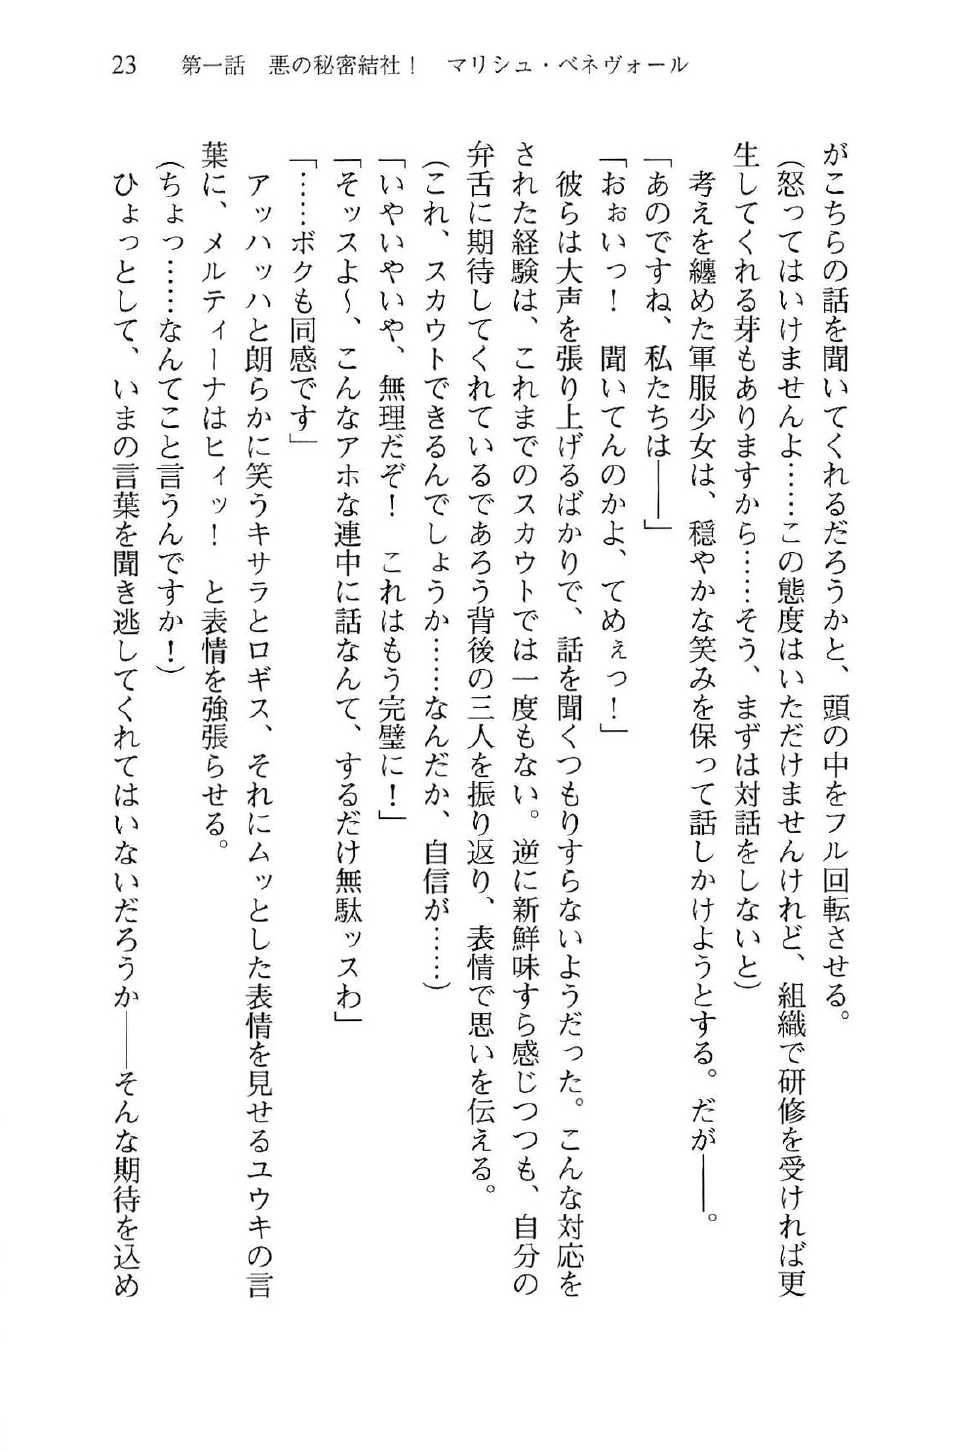 23　第一話　悪の秘密結社！　マリシュ・ベネヴォール
がこちらの話を聞いてくれるだろうかと、頭の中をフル回転させる。
（怒ってはいけませんよ……この態度はいただけませんけれど、組織で研修を受ければ更
生してくれる芽もありますから……そう、まずは対話をしないと）
　考えを纏めた軍服少女は、穏やかな笑みを保って話しかけようとする。だが――。
「あのですね、私たちは――」
「おぉいっ！　聞いてんのかよ、てめぇっ！」
　彼らは大声を張り上げるばかりで、話を聞くつもりすらないようだった。こんな対応を
された経験は、これまでのスカウトでは一度もない。逆に新鮮味すら感じつつも、自分の
弁舌に期待してくれているであろう背後の三人を振り返り、表情で思いを伝える。
（これ、スカウトできるんでしょうか……なんだか、自信が……）
「いやいやいや、無理だぞ！　これはもう完璧に！」
「そッスよ～、こんなアホな連中に話なんて、するだけ無駄ッスわ」
「……ボクも同感です」
　アッハッハと朗らかに笑うキサラとロギス、それにムッとした表情を見せるユウキの言
葉に、メルティーナはヒィッ！　と表情を強張らせる。
（ちょっ……なんてこと言うんですか！）
　ひょっとして、いまの言葉を聞き逃してくれてはいないだろうか――そんな期待を込め